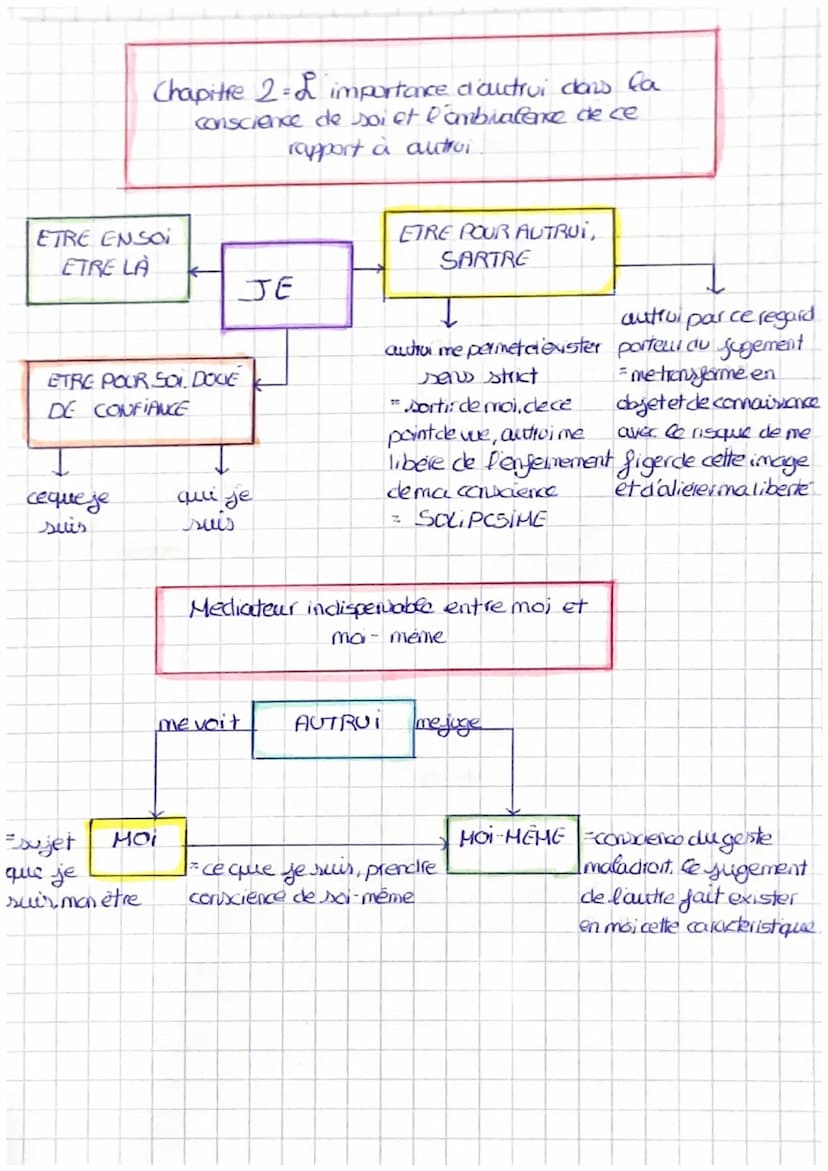 Chapitre 2 = L'importance d'autrui dans la
conscience de soi et l'ambivalence de ce
rapport à autrui.
ETRE EN SOI
ETRE LÀ
JE
ETRE POUR AUTRUI,
SARTRE
ETRE POUR SOI. DOUÉ
DE CONFIANCE
ce que je
suis
qui je
suis
autrui me permet d'exister
sens strict
= sortir de moi, de ce
point de vue, autrui me
libère de l'enfermement
de ma conscience
= SOLIPCSIME
autrui par ce regard
porteur du jugement
= me transforme en
objet et de connaissance
avec le risque de me
figer de cette image
et d'aliéner ma liberté
Médiateur indispensable entre moi et
moi-même
me voit
AUTRUI
me juge
= sujet
que je
suis, mon être
MOI
= ce que je suis, prendre
conscience de soi-même
MOI-MÊME
= conscience du geste
maladroit. Ce jugement
de l'autre fait exister
en moi cette caractéristique